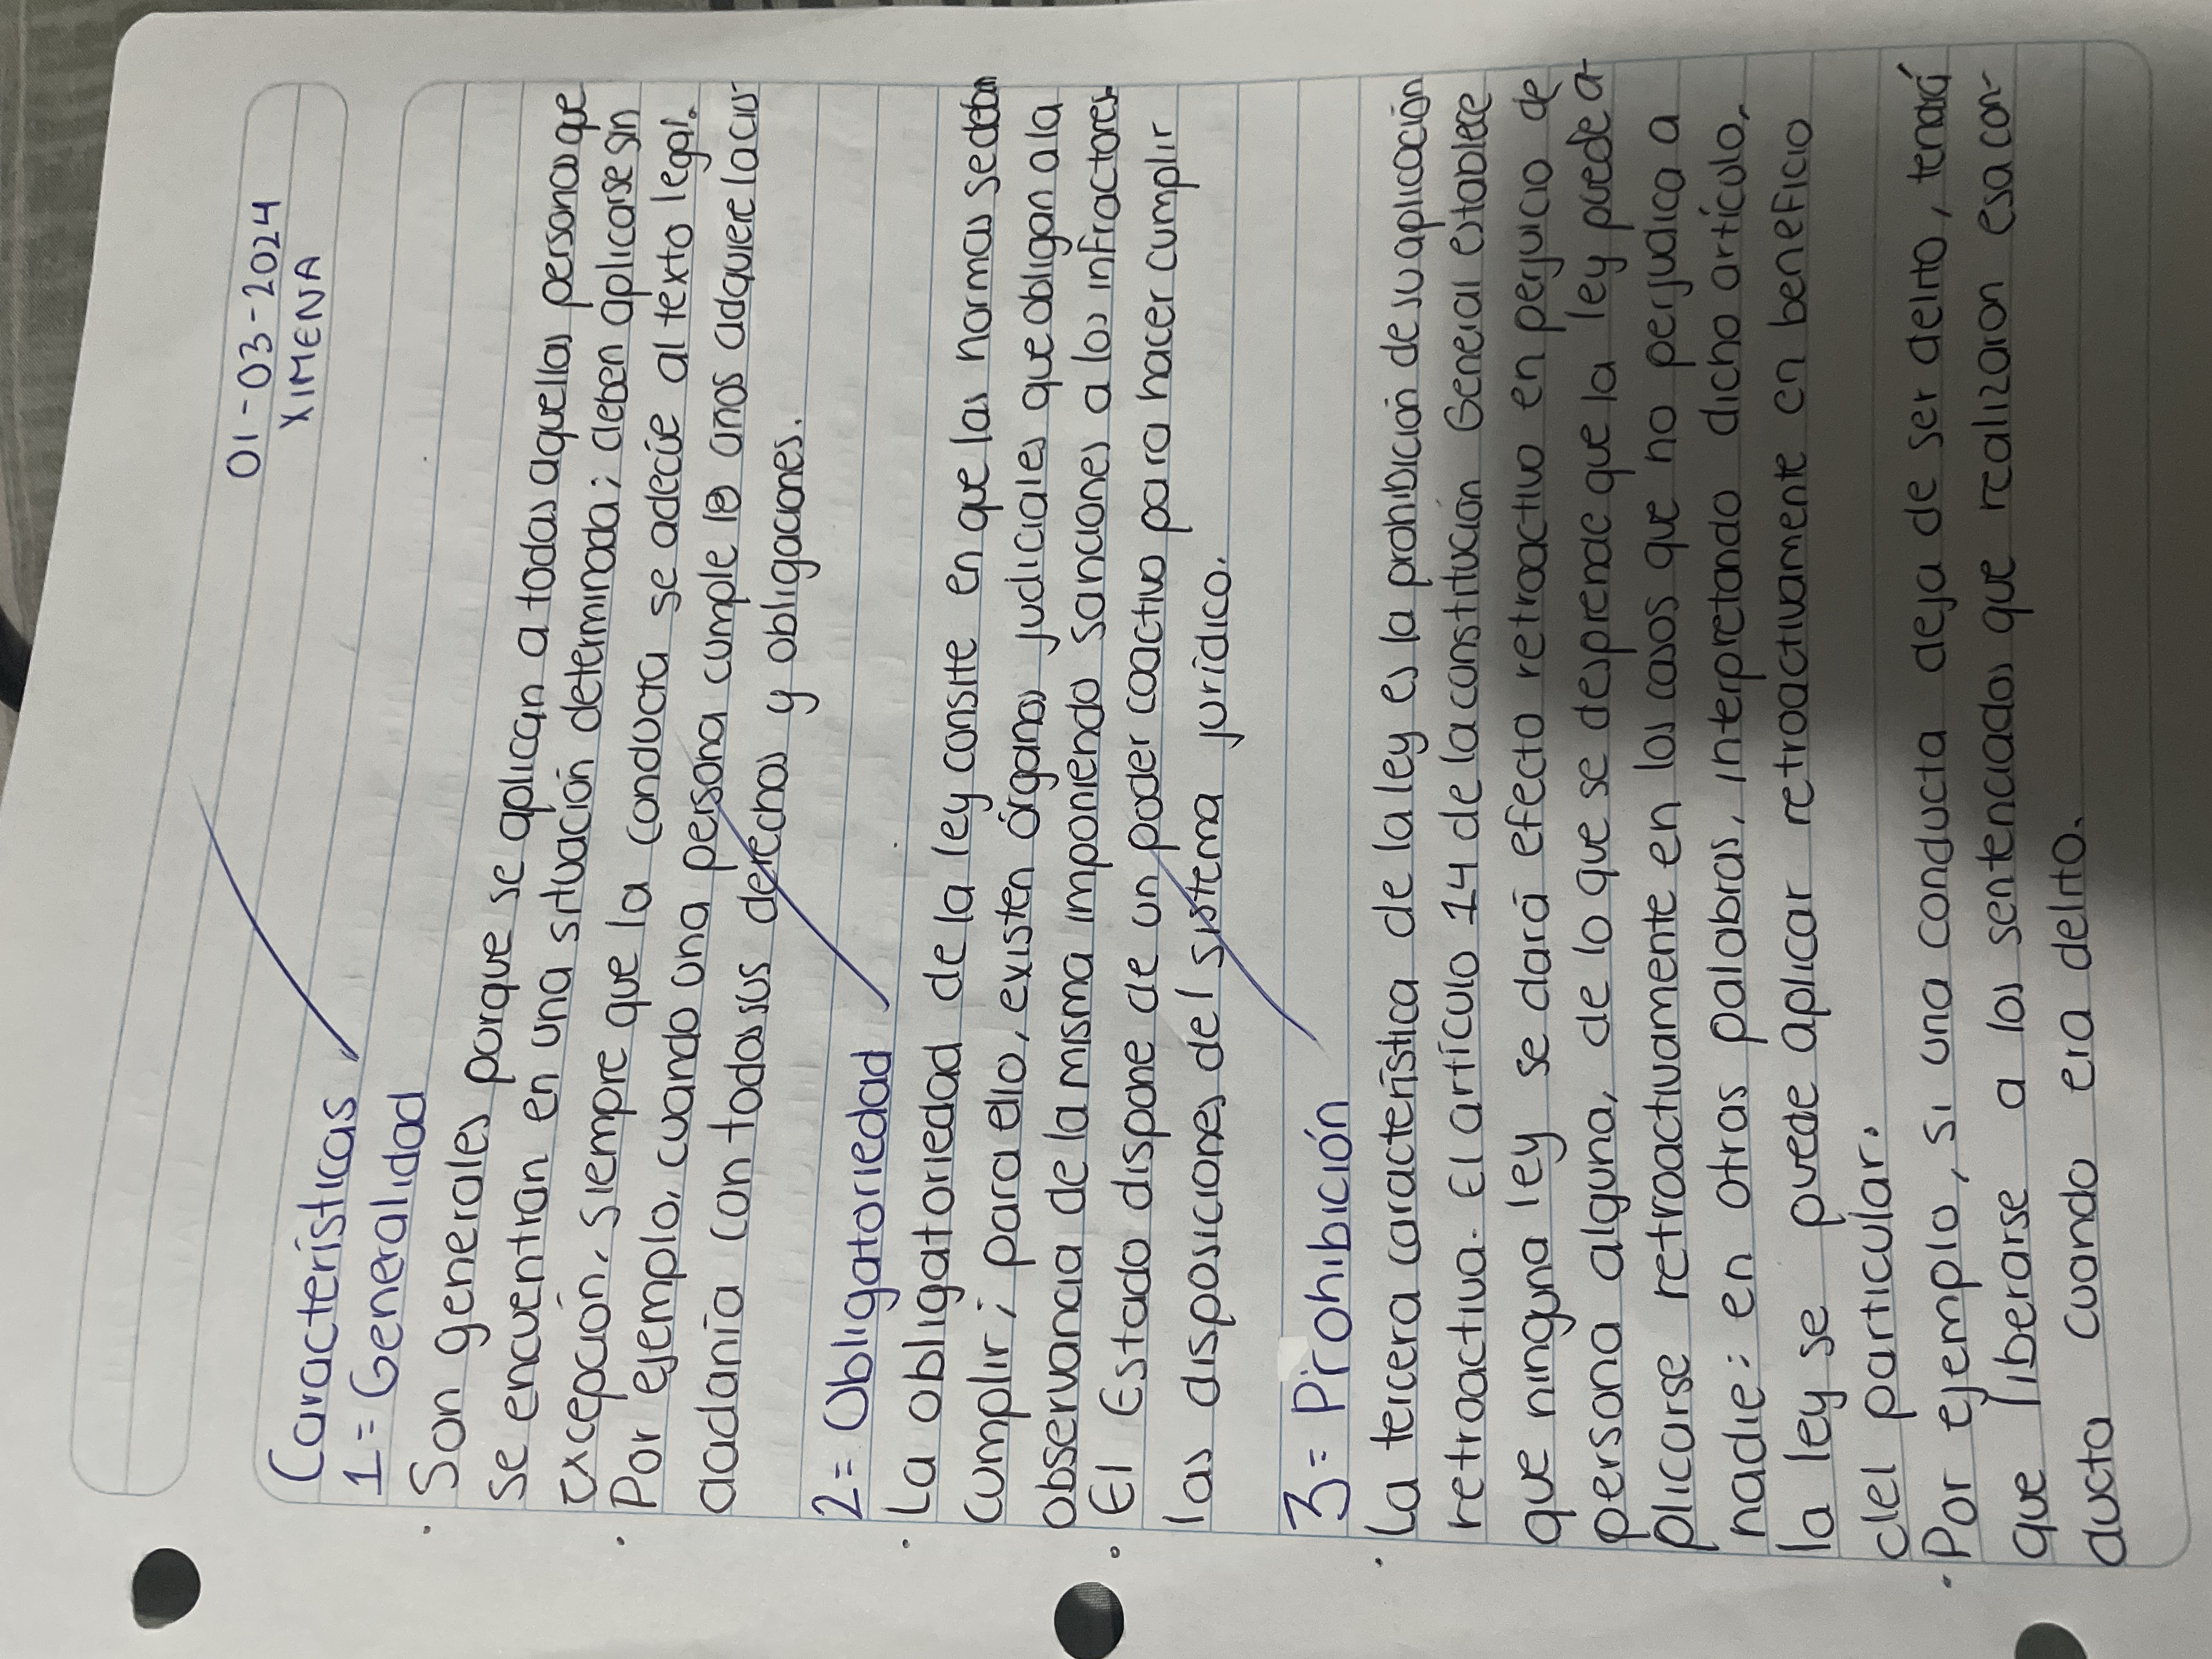 01-03-2024
XIMENA
Características
1= Generalidad
· Son generales porque se aplican a todas aquellas personas que
se encuentran en una situación determinada; deben aplicarse sin
excepción, siempre que la conducta se adecúe al texto legal.
· Por ejemplo, cuando una persona cumple 18 anos adquiere la ciu-
dadanía con todos sus derechos y obligaciones.
2= Obligatoriedad
· La obligatoriedad de la ley consite en que las normas se deban
cumplir; para ello, existen órganos judiciales que obligan a la
observancia de la misma imponiendo sanciones a los infractores.
· El Estado dispone de un poder coactivo para hacer cumplir
las disposiciones del sistema jurídico.
3= Prohibición
· La tercera característica de la ley es la prohibición de su aplicación
retroactiva. El artículo 14 de la constitución General establece
que ninguna ley se dará efecto retroactivo en perjuicio de
persona alguna, de lo que se desprende que la ley puede a-
plicarse retroactivamente en los casos que no perjudica a
nadie: en otras palabras, interpretando dicho artículo,
la ley se puede aplicar retroactivamente en beneficio
del particular.
· Por ejemplo, si una conducta deja de ser delito, tendrá
que liberarse a los sentenciados que realizaron esa con-
ducta cuando era delito.